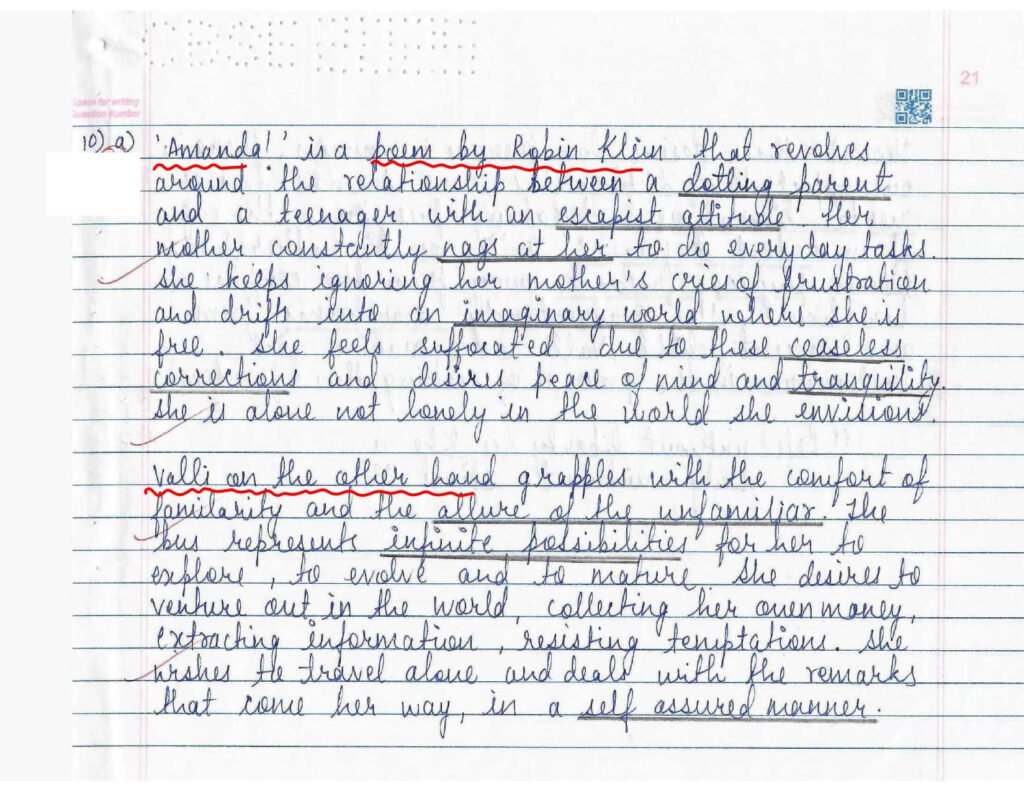 21
Space for writing
Question Number
10) a) 'Amanda!' is a poem by Robin Klien that revolves
around the relationship between a dotling parent
and a teenager with an escapist attitude. Her
mother constantly nags at her to do everyday tasks.
She keeps ignoring her mother's cries of frustration
and drifts into an imaginary world where she is
free. She feels suffocated due to these ceaseless
corrections and desires peace of mind and tranquility.
She is alone not lonely in the world she envisions.
Valli on the other hand grapples with the comfort of
familarity and the allure of the unfamiliar. The
bus represents infinite possibilities for her to
explore, to evolve and to mature. She desires to
venture out in the world, collecting her own money,
extracting information, resisting temptations. She
wishes to travel alone and deals with the remarks
that come her way, in a self assured manner.